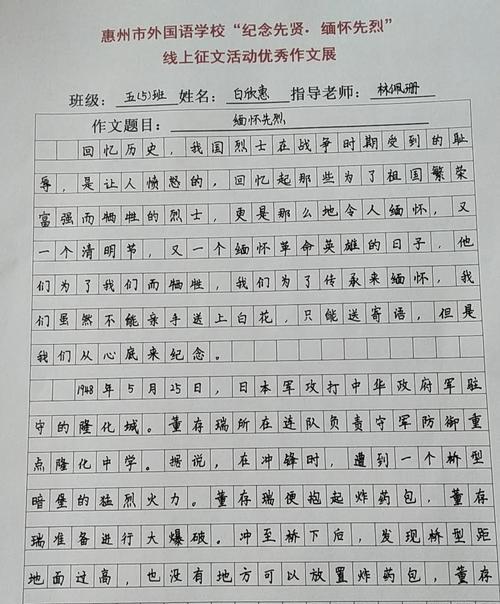 惠州市外国语学校“纪念先贤．缅怀先烈”
线上征文活动优秀作文展
班级：五(5)班 姓名：白欣惠 指导老师：林佩珊
作文题目：缅怀先烈
回忆历史，我国烈士在战争时期受到的耻
辱，是让人愤怒的，回忆起那些为了祖国繁荣
富强而牺牲的烈士，更是那么地令人缅怀，又
一个清明节，又一个缅怀革命英雄的日子，他
们为了我们而牺牲，我们为了传承来缅怀，我
们虽然不能亲手送上白花，只能送寄语，但是
我们从心底来纪念。
1948年5月25日，日本军攻打中华政府军驻
守的隆化城。董存瑞所在连队负责守军防御重
点隆化中学。据说，在冲锋时，遭到一个桥型
暗堡的猛烈火力。董存瑞便抱起炸药包，董存
瑞准备进行大爆破。冲至桥下后，发现桥型距
地面过高，也没有地方可以放置炸药包，董存